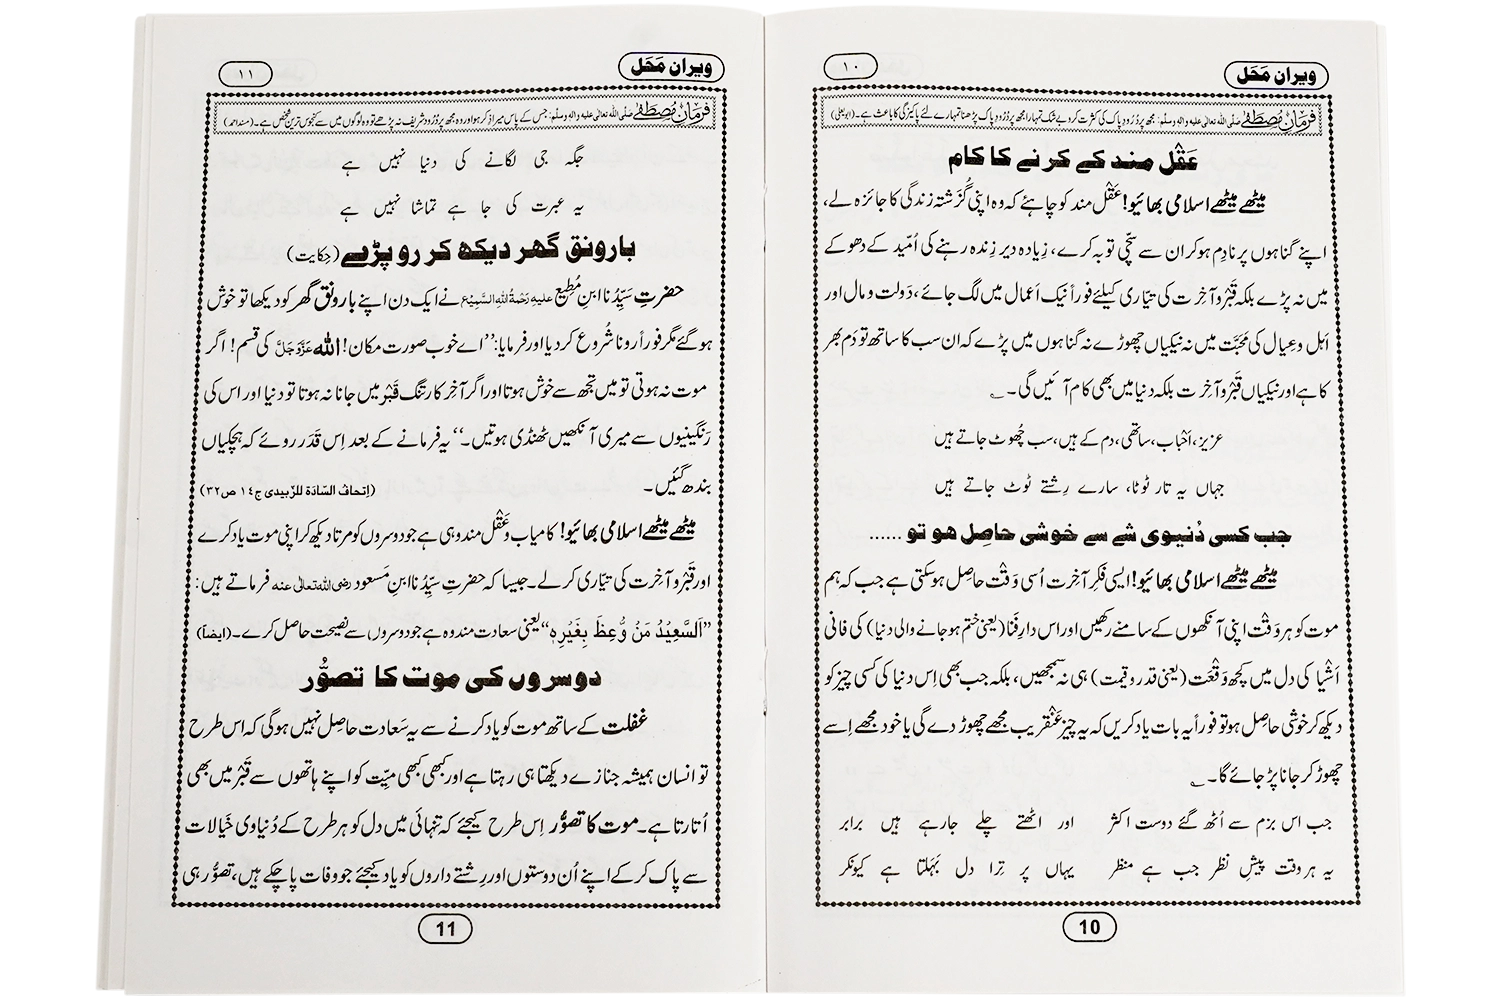 ویران مَحَل
١٠
فرمانِ مُصطَفٰے صلَّی اللہ تعالٰی علیہ والہٖ وسلَّم: مجھ پر دُرُودِ پاک کی کثرت کرو بے شک تمہارا مجھ پر دُرُودِ پاک پڑھنا تمہارے لئے پاکیزگی کا باعث ہے۔ (ابو یعلیٰ)
عَقْل مند کے کرنے کا کام
میٹھے میٹھے اسلامی بھائیو! عَقْل مند کو چاہئے کہ وہ اپنی گُزَشتہ زندگی کا جائزہ لے،
اپنے گناہوں پر نادِم ہو کر ان سے سچّی توبہ کرے، زِیادہ دیر زِندہ رہنے کی اُمّید کے دھوکے
میں نہ پڑے بلکہ قَبْر و آخِرت کی تیّاری کیلئے فوراً نیک اَعمال میں لگ جائے، دَولت و مال اور
اَہل و عِیال کی مَحَبَّت میں نہ نیکیاں چھوڑے نہ گناہوں میں پڑے کہ ان سب کا ساتھ تو دَم بھر
کا ہے اور نیکیاں قَبْر و آخِرت بلکہ دنیا میں بھی کام آئیں گی۔ ؎
عزیز، اَحْباب، ساتھی، دم کے ہیں، سب چُھوٹ جاتے ہیں
جہاں یہ تار ٹوٹا، سارے رِشتے ٹوٹ جاتے ہیں
جب کسی دُنیوی شے سے خوشی حاصِل ہو تو ......
میٹھے میٹھے اسلامی بھائیو! ایسی فکرِ آخرت اُسی وَقْت حاصِل ہوسکتی ہے جب کہ ہم
موت کو ہر وَقْت اپنی آنکھوں کے سامنے رکھیں اور اس دارِ فنا (یعنی ختم ہو جانے والی دنیا) کی فانی
اَشْیا کی دل میں کچھ وَقْعَت (یعنی قدر و قیمت) ہی نہ سمجھیں، بلکہ جب بھی اِس دنیا کی کسی چیز کو
دیکھ کر خوشی حاصِل ہو تو فوراً یہ بات یاد کریں کہ یہ چیز عنقریب مجھے چھوڑ دے گی یا خود مجھے اِسے
چھوڑ کر جانا پڑ جائے گا۔ ؎
جب اس بزم سے اُٹھ گئے دوست اکثر اور اٹھتے چلے جارہے ہیں برابر
یہ ہر وقت پیشِ نظر جب ہے منظر یہاں پر تِرا دل بَہلتا ہے کیونکر
10
ویران مَحَل
١١
فرمانِ مُصطَفٰے صلَّی اللہ تعالٰی علیہ والہٖ وسلَّم: جس کے پاس میرا ذکر ہو اور وہ مجھ پر دُرُود شریف نہ پڑھے تو وہ لوگوں میں سے کنجوس ترین شخص ہے۔ (مسند احمد)
جگہ جی لگانے کی دنیا نہیں ہے
یہ عبرت کی جا ہے تماشا نہیں ہے
بارونق گھر دیکھ کر رو پڑے (حِکایت)
حضرتِ سیِّدُنا ابنِ مُطِیع علیہ رَحمۃُ اللہِ السَّمِیْع نے ایک دن اپنے بارونق گھر کو دیکھا تو خوش
ہو گئے مگر فوراً رونا شُروع کر دیا اور فرمایا: ”اے خوب صورت مکان! اللہ عَزَّوَجَلَّ کی قسم! اگر
موت نہ ہوتی تو میں تجھ سے خوش ہوتا اور اگر آخِر کار تنگ قَبْر میں جانا نہ ہوتا تو دنیا اور اس کی
رَنگینیوں سے میری آنکھیں ٹھنڈی ہوتیں۔“ یہ فرمانے کے بعد اِس قَدَر روئے کہ ہچکیاں
بندھ گئیں۔ (اِتحافُ السّادَة للزّبیدی ج١٤ ص٣٢)
میٹھے میٹھے اسلامی بھائیو! کامیاب و عَقْل مند وہی ہے جو دوسروں کو مرتا دیکھ کر اپنی موت یاد کرے
اور قَبْر و آخِرت کی تیّاری کرلے۔ جیسا کہ حضرتِ سیِّدُنا ابنِ مَسعود رضی اللہ تعالٰی عنہ فرماتے ہیں:
”اَلسَّعِیْدُ مَنْ وُّعِظَ بِغَیْرِہٖ“ یعنی سعادت مند وہ ہے جو دوسروں سے نصیحت حاصل کرے۔ (ایضاً)
دوسروں کی موت کا تصوُّر
غفلت کے ساتھ موت کو یاد کرنے سے یہ سَعادت حاصِل نہیں ہوگی کہ اس طرح
تو انسان ہمیشہ جنازے دیکھتا ہی رہتا ہے اور کبھی کبھی میِّت کو اپنے ہاتھوں سے قَبْر میں بھی
اُتارتا ہے۔ موت کا تصوُّر اِس طرح کیجئے کہ تنہائی میں دل کو ہر طرح کے دُنیاوی خَیالات
سے پاک کرکے اپنے اُن دوستوں اور رِشتے داروں کو یاد کیجئے جو وفات پاچکے ہیں، تصوُّر ہی
11